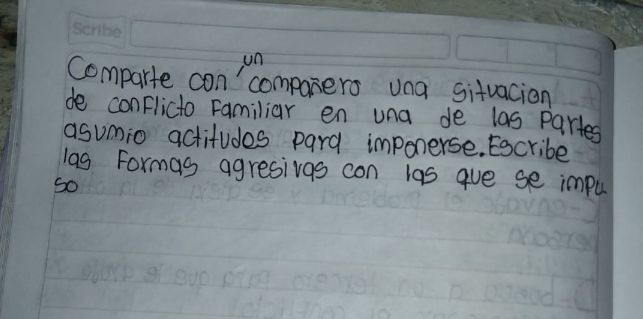 Scribe
Comparte con un compañero una situacion
de conflicto Familiar en una de las Partes
asumio actitudes para imponerse. Escribe
las Formas agresivas con las que se impu
so